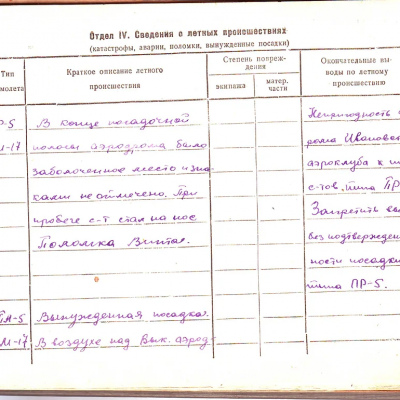 Отдел IV. Сведения о летных происшествиях
(катастрофы, аварии, поломки, вынужденные посадки)
Тип
молета
Краткое описание летного
происшествия
Степень повреж-
дения
экипажа
матер.
части
Окончательные вы-
воды по летному
происшествию
Р-5
М-17
В конце посадочной
полосы аэродрома было
заболоченное место и зна-
ками не отмечено. При
пробеге с-т стал на нос.
Поломка Винта.
Непригодность
рома Ивановс
аэроклуба к
с-тов типа ПР
Запретить
без подтвержден
ности посадки
типа ПР-5.
М-5
М-17
Вынужденная посадка.
В воздухе над Вык. аэрод-